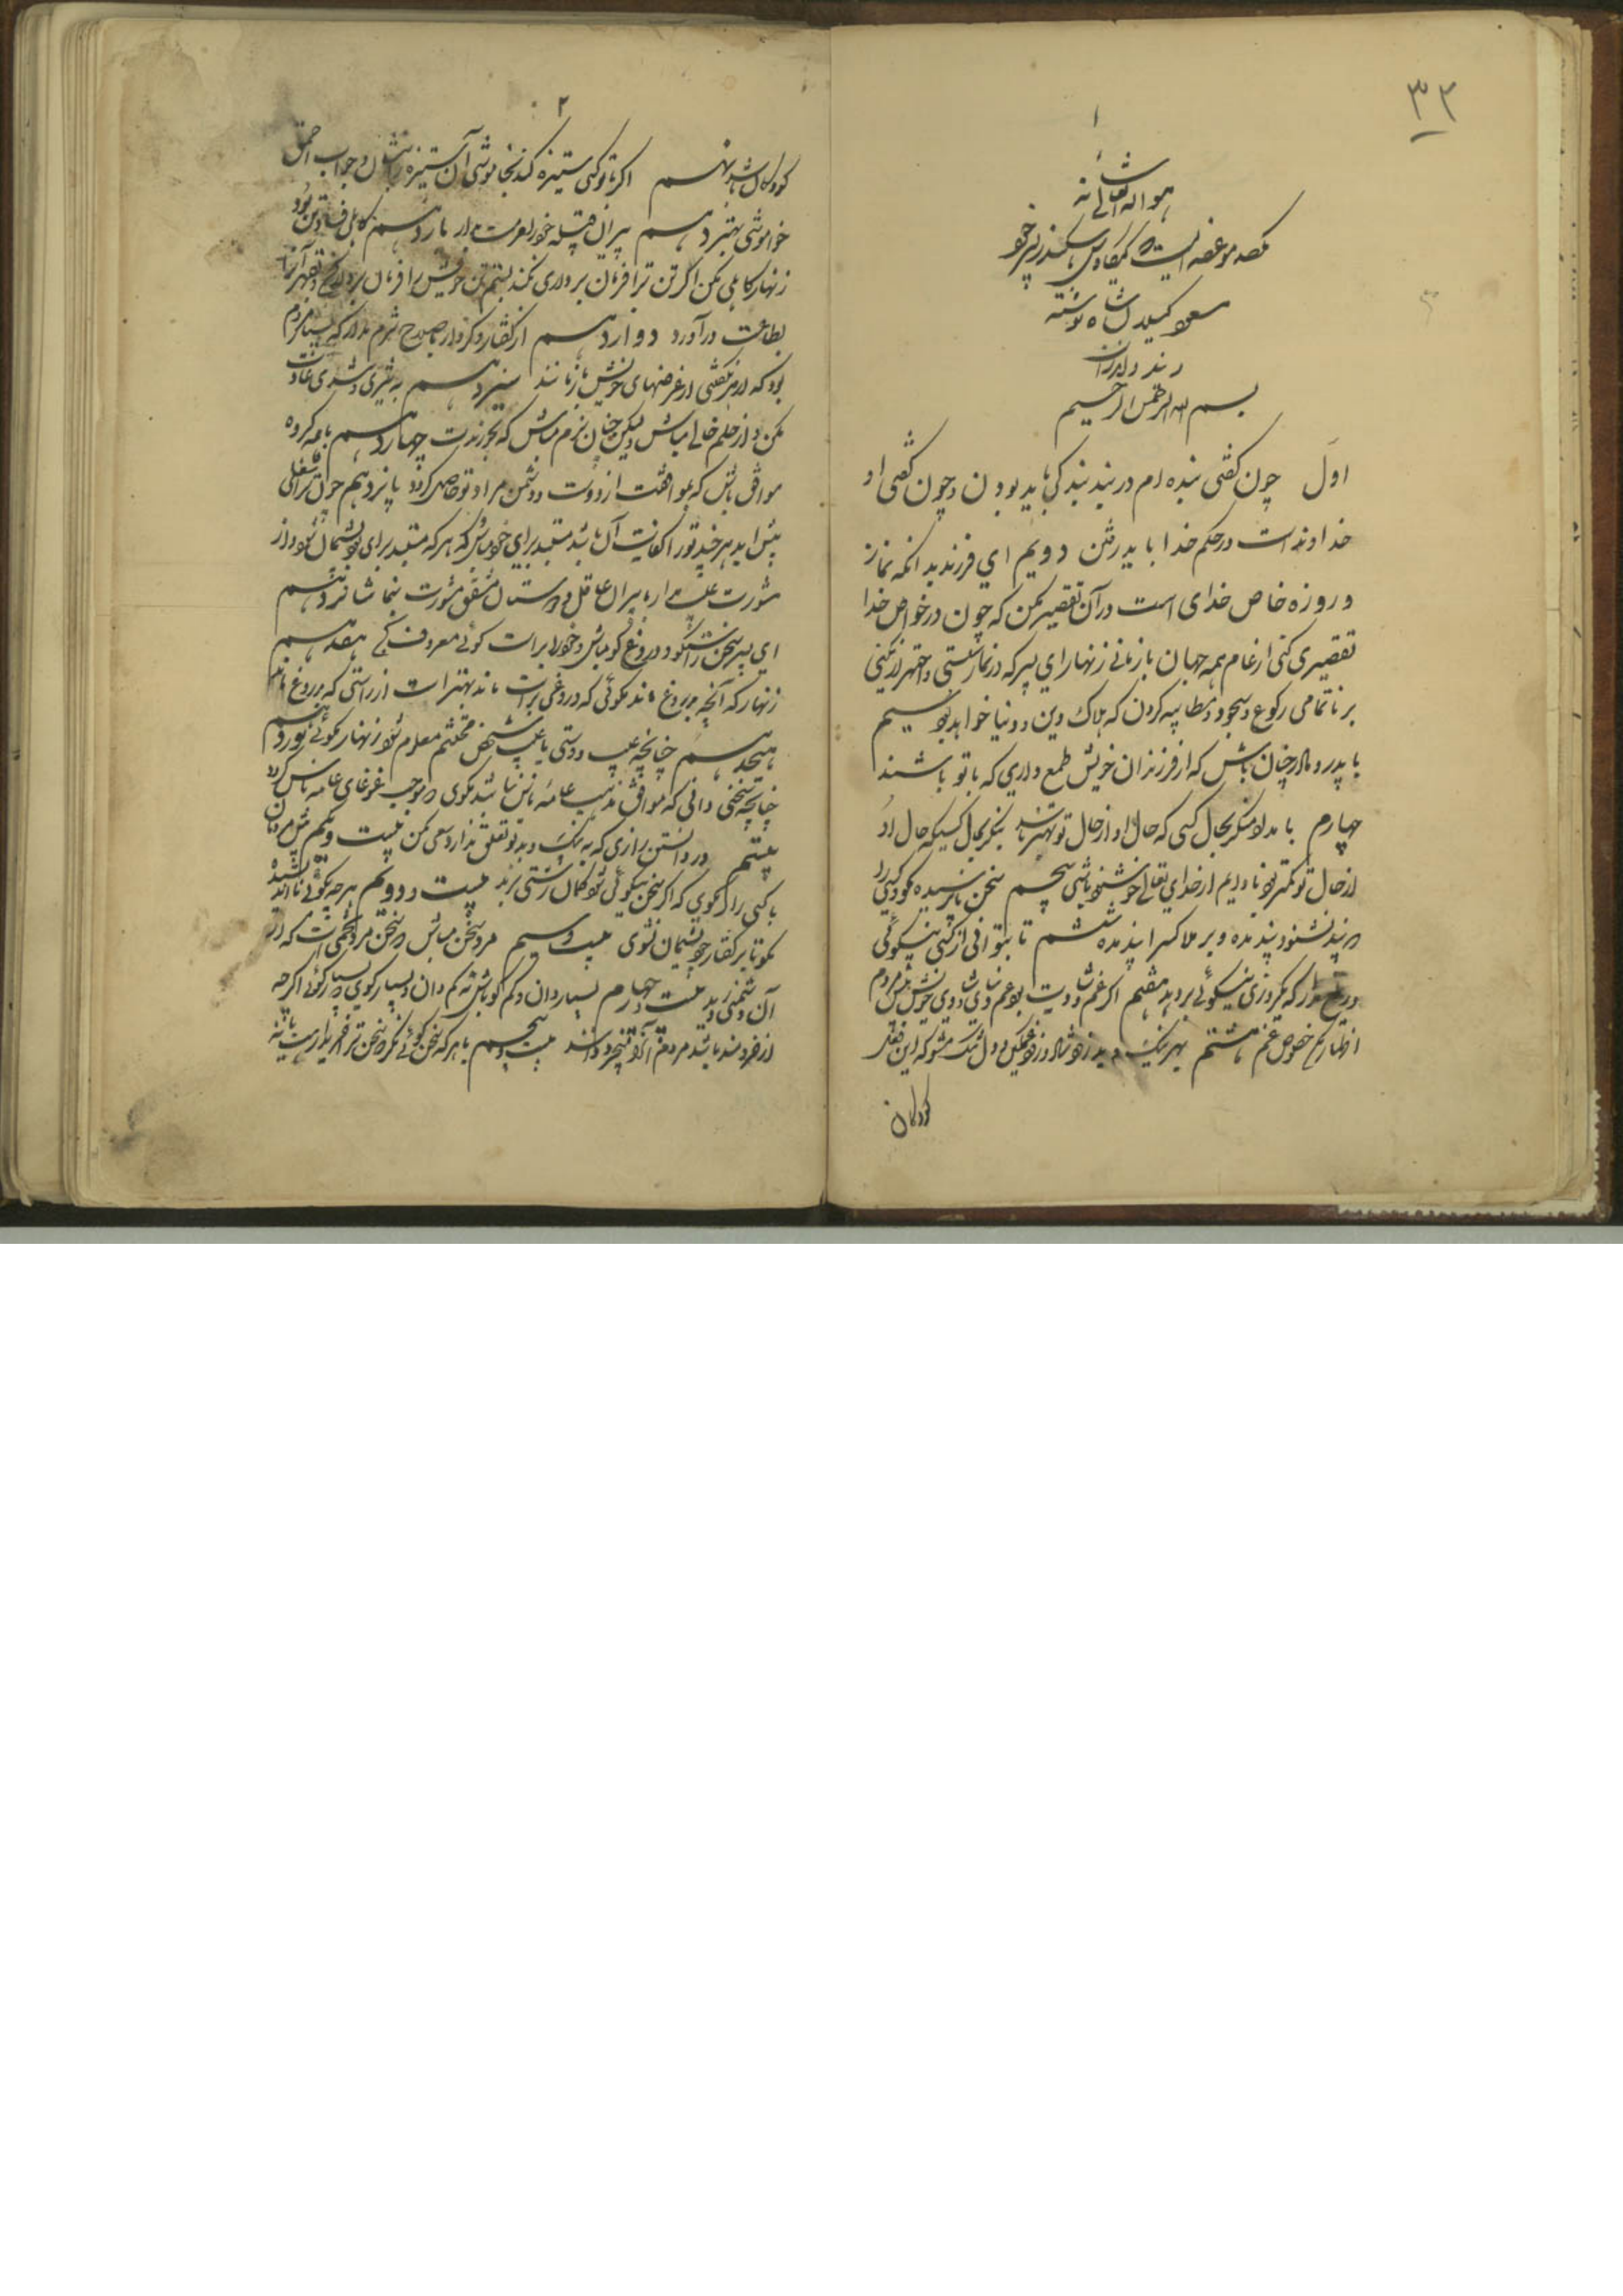 ۳۲
۱
هو الله تعالی شانه
موعضه ایست که کیکاوس اسکندر پسر خود
کیلان شاه نوشته
بسم الله الرحمن الرحیم
اول چون کفتی بنده ام در بند بندکی باید بودن و چون کفتی او
خداوند است در حکم خدا باید رفتن دویم ای فرزند بدانکه نماز
و روزه خاص خدای است در آن تقصیر مکن که چون در خواص خدا
تقصیری کنی از عام همه جهان بازمانی زنهار ای پسر که در نماز سستی و استهزا نکنی
بر ناتمامی رکوع و سجود و مطایبه کردن که هلاک دین و دنیا خواهد بود سیم
با پدر و مادر چنان باش که از فرزندان خویش طمع داری که با تو باشند
چهارم بامداد منکر بحال کسی که حال او از حال تو بهتر باشد بنکر بحال کسیکه حال او
از حال تو کمتر بود تا دایم از خدای تعالی خوشنود باشی پنجم سخن ناپرسیده مکو و کسی را
که پند نشنود پند مده و بر ملا کسرا پند مده ششم تا بتوانی از کسی نیکوئی
دریغ مدار که یکروزی نیکوئی بر دهد هفتم اکر غم و شادیت بود غم و شادی خویش پیش مردم
اظهار مکن خصوص غم هشتم بهر نیک و بد زود شاد و زود غمکین و دل تنک مشو که این فعل
کودکان
۲
کودکان باشد نهم اکر با تو کسی ستیزه کند بخاموشی آن ستیزه را بنشان و جواب احمق
خاموشی بهتر دهم پیران قبیله خود را حرمت دار یازدهم کاهلی فساد تن بود
زنهار کاهلی مکن اکر تن ترا فرمان برداری نکند بستم تن خویش را فرمان بردار کن و بقهر آنرا
بطاعت درآورد دوازدهم از کفتار و کردار با صلاح شرم مدار که بسیار مردم
بود که از شرمکنی از غرضهای خویش بازمانند سیزدهم به تیزی و تندی عادت
مکن و از حلم خالی مباش ولیکن چنان نرم مباش که بخورندت چهاردهم با همه کروه
موافق باش که بموافقت از دوست و دشمن مراد تو حاصل کردد پانزدهم چون ترا شغلی
پیش آید هر چند تو را کفایت آن باشد مستبد برای خود مباش که هر که مستبد برای بود پشیمان شود و از
مشورت عیب مدار با پیران عاقل و دوستان مشفق مشورت بنما شانزدهم
ای پسر سخن راستکو و دروغ کو مباش و خود را براست کوئی معروف کن هفدهم
زنهار که آنچه بدروغ ماند مکوئی که دروغی براست ماند بهتر است از راستی که بدروغ ماند
هیجدهم چنانچه عیب دوستی یا عیب شخص محتشم معلوم شود زنهار مکوئی نوزدهم
چنانچه سخنی دانی که موافق مذهب عامه ناس نباشد مکوی که موجب غوغای عامه ناس کردد
بیستم در دانستن رازی که به نیک و بد تو تعلق ندارد سعی مکن بیست و یکم پیش مردمان
با کسی راز مکوی که اکر سخن نیکو کوئی شود کمان زشتی برند بیست و دویم هر چه کوئی نااندیشیده
مکو تا بر کفتار خود پشیمان نشوی بیست و سیم سرد سخن مباش که سخن سرد تخمی است که از
آن دشمنی روید بیست و چهارم بسیار دان و کم کو باش نه کم دان و بسیار کوی که بسیار کوئی اکر چه
از خردمند باشد مردم آنرا بیخرد دانند بیست و پنجم با هر که سخن کوئی نکر که سخن ترا خریدار هست یا نه